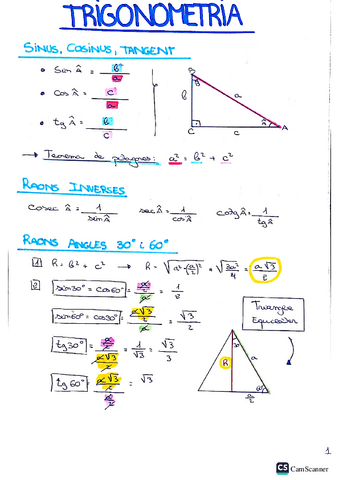 TRIGONOMETRIA
SINUS, COSINUS, TANGENT
• Sin Â = b/a
• Cos Â = c/a
• tg Â = b/c
B b a C c A
→ Teorema de pitàgores: a² = b² + c²
RAONS INVERSES
cosec Â = 1/sin Â sec Â = 1/cos Â cotg Â = 1/tg Â
RAONS ANGLES 30° i 60°
1
= √3a²/4 = a√3/2
2 sin30° = cos60° = a/2/a = 1/2
sin60° = cos30° = a√3/2/a = √3/2
tg30° = a/2/a√3/2 = 1/√3 = √3/3
tg60° = a√3/2/a/2 = √3
Triangle
Equilàter
30 a
60°
a/2
1
CS CamScanner